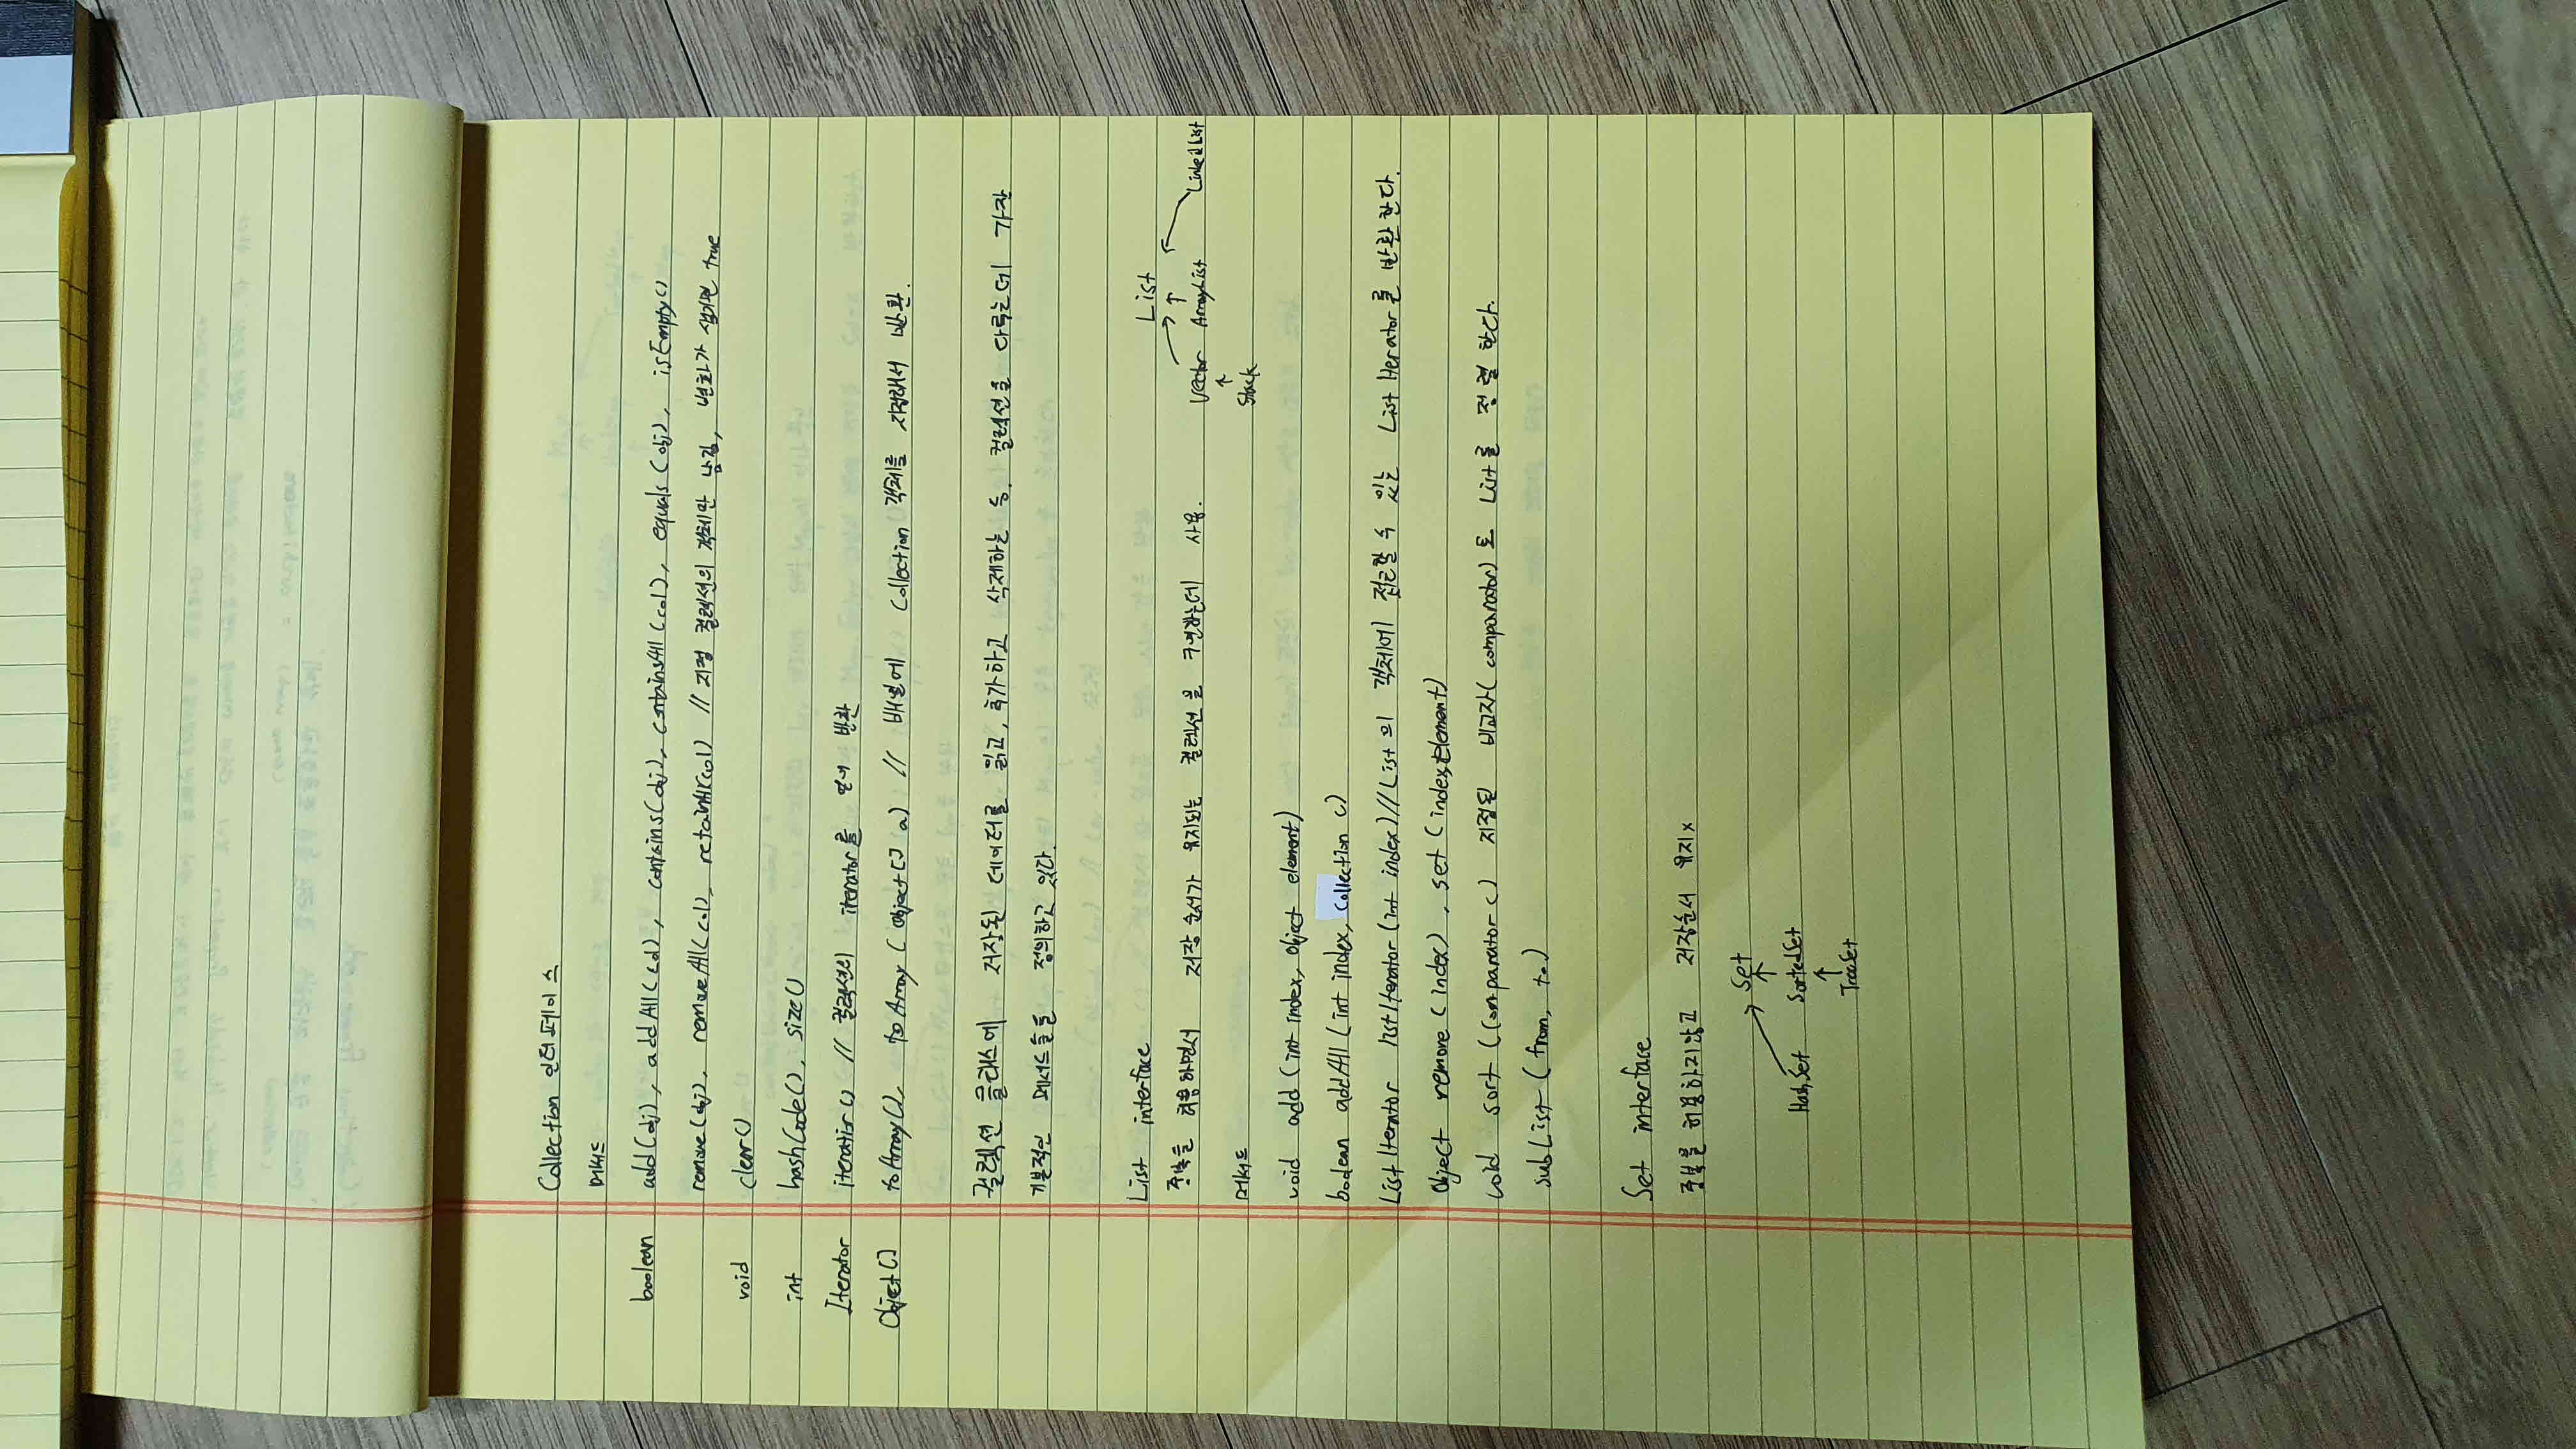 Collection 인터페이스
메서드
boolean add(obj), addAll(col), contains(obj), containsAll(col), equals(obj), isEmpty()
remove(obj), removeAll(col), retainAll(col) // 지정 컬렉션의 객체만 남김, 변화가 생기면 true
void clear()
int hashCode(), size()
Iterator iterator() // 컬렉션의 iterator를 얻어 반환
Object[] toArray(), toArray(Object[] a) // 배열에 Collection 객체를 저장해서 반환.
컬렉션 클래스에 저장된 데이터를 읽고, 추가하고 삭제하는 등. 컬렉션을 다루는데 가장
기본적인 메서드들을 정의하고 있다.
List interface
List
중복을 허용하면서 저장 순서가 유지되는 컬렉션을 구현하는데 사용.
Vector ArrayList LinkedList
메서드
Stack
void add(int index, Object element)
boolean addAll(int index, Collection c)
ListIterator listIterator(int index) // List의 객체에 접근할 수 있는 ListIterator를 반환한다.
Object remove(index), set(index, element)
void sort(Comparator c) 지정된 비교자(comparator)로 List를 정렬한다.
subList(from, to)
Set interface
중복을 허용하지않고 저장순서 유지x
Set
HashSet SortedSet
TreeSet